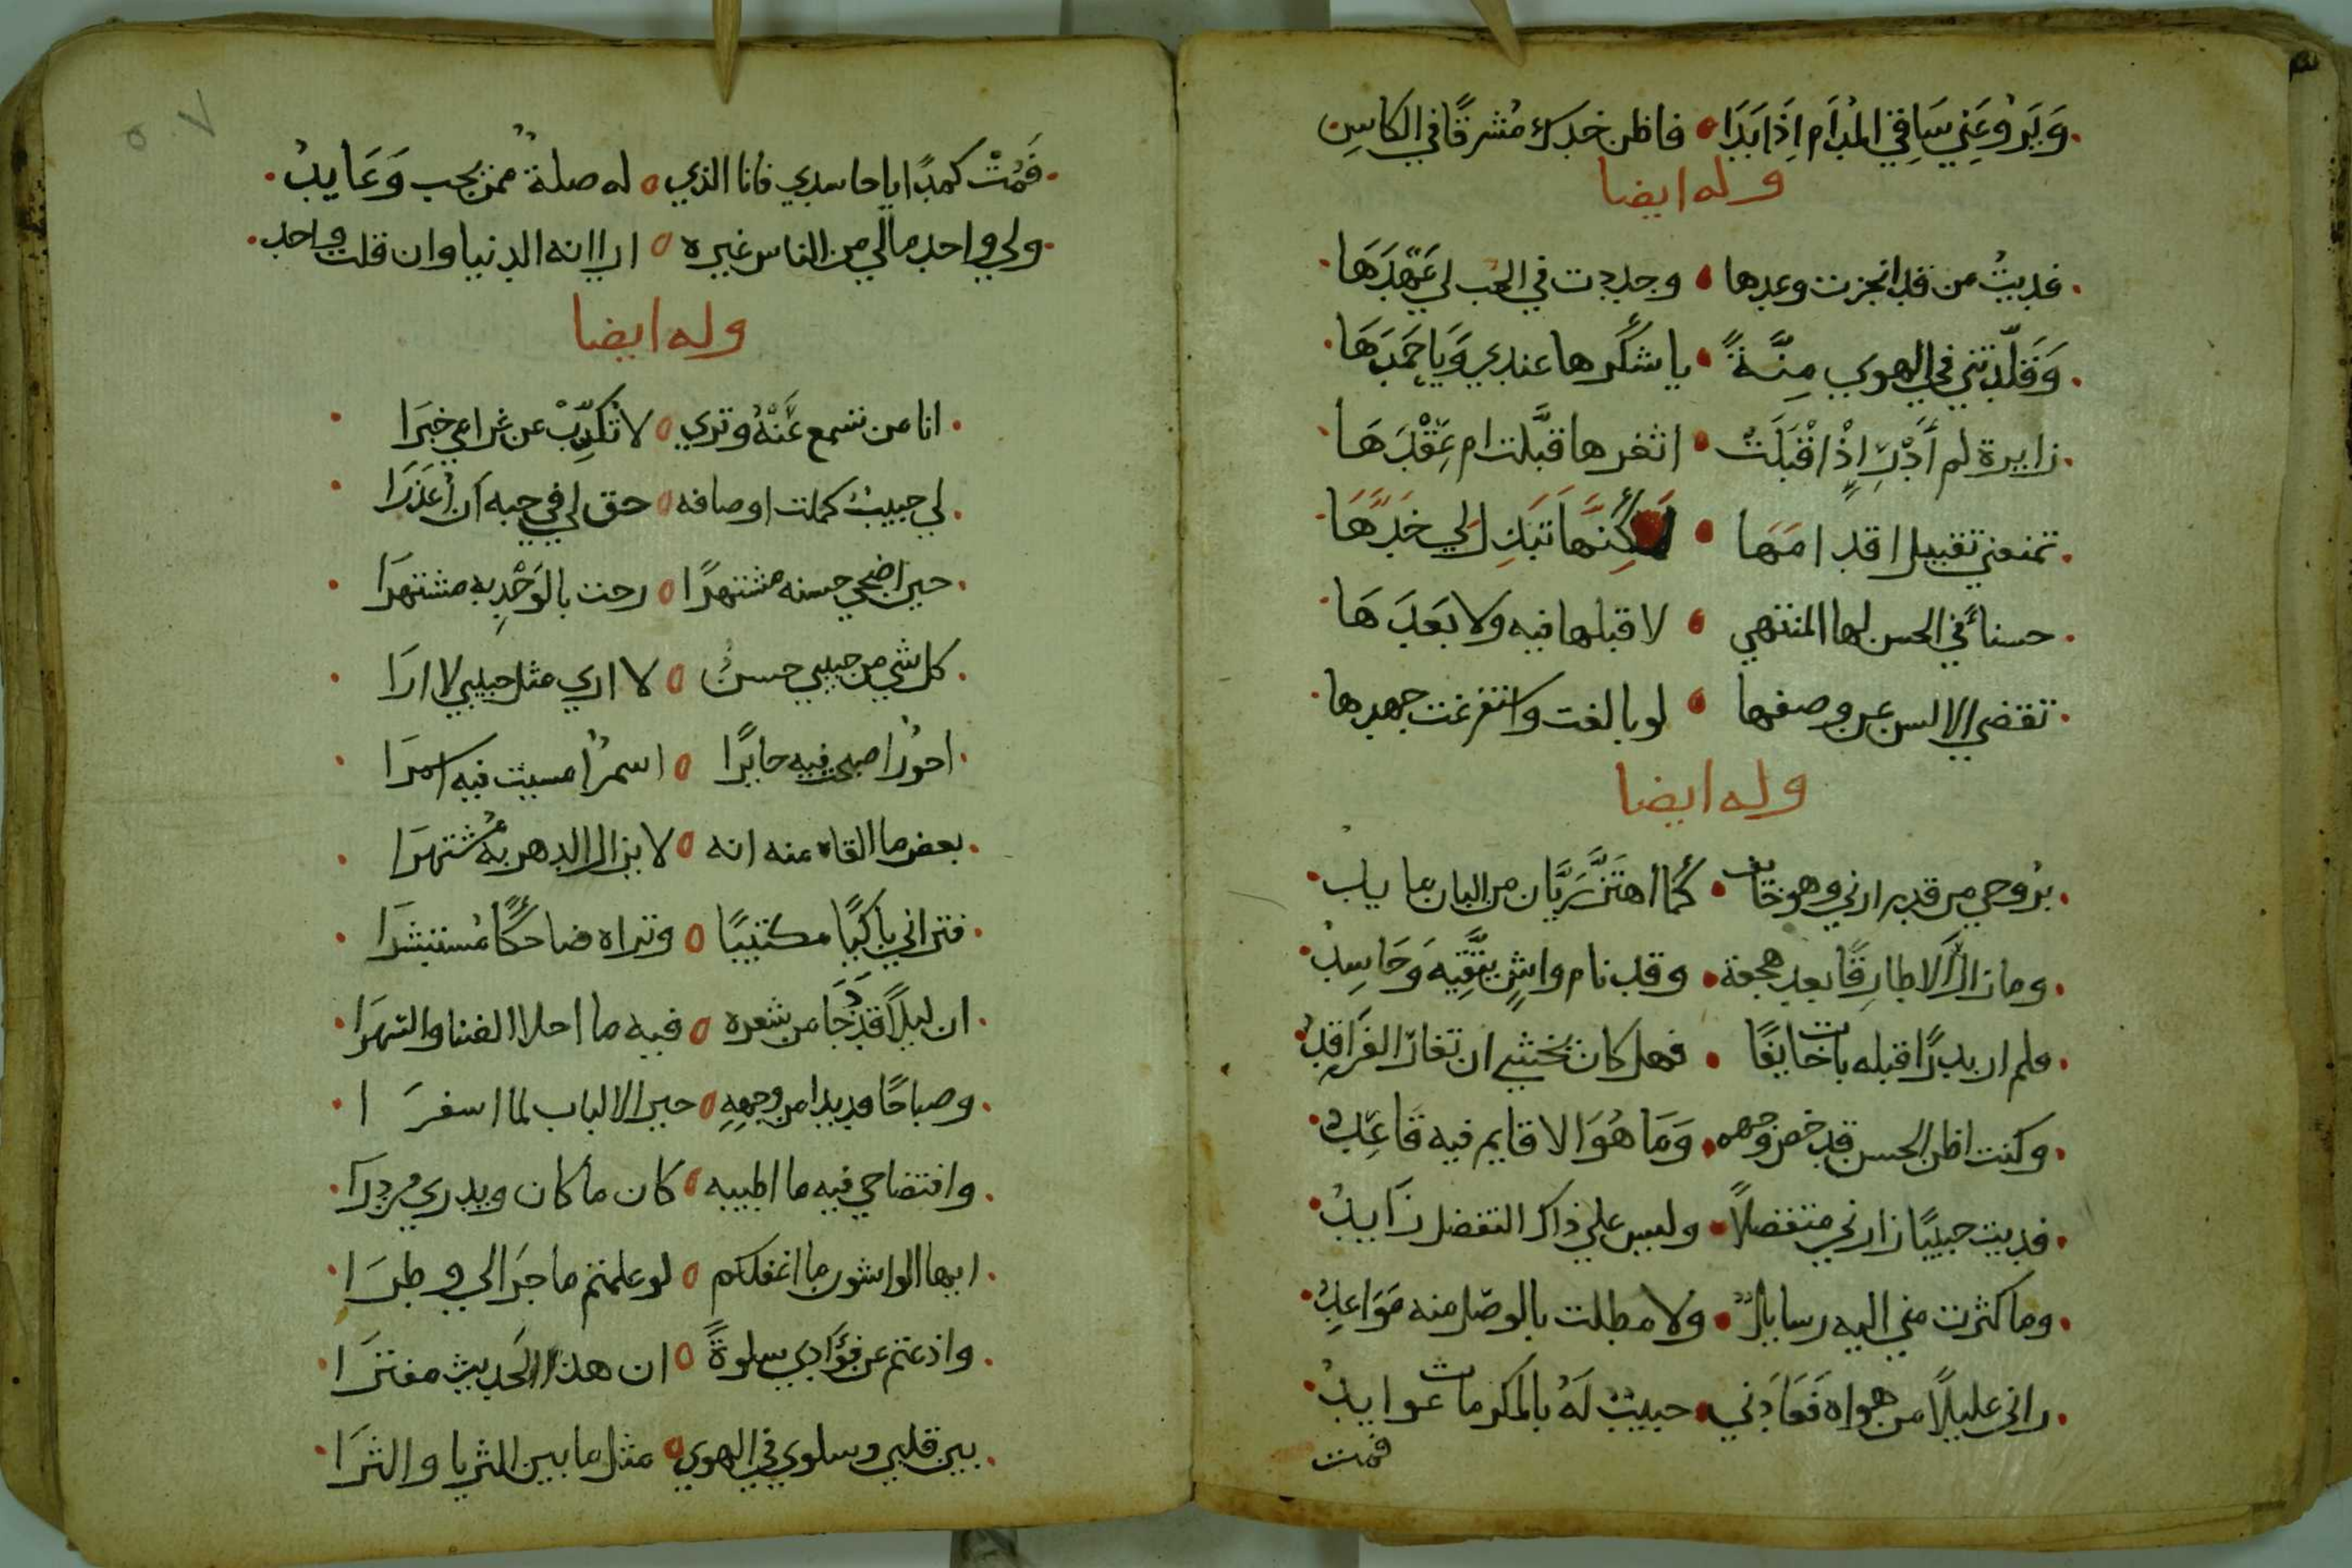 وَيَرُوعُني سَاقِي المُدَام اِذَا بَدَا فاظن خدك مُشرقًا في الكاسِ
وله ايضا
فديتُ من قد انجزت وعدها وجددت في الحب لي عَهْدَهَا
وَقَلَّدَتني في الهوي مِنَّةً يا شكرها عندي وَيَا حَمْدَهَا
زايرة لم أَدْرِ اِذْ اقْبَلَتْ اثغرها قبَّلت ام عِقْدَهَا
تمنعني تقبيل اقدامَهَا لكِنَّهَا تبذل لي خَدَّهَا
حسنائُ في الحسن لها المنتهي لا قبلها فيه ولا بَعْدَهَا
تقضي الالسن عن وصفها لو بالغت واستفرغت جهدها
وله ايضا
برُوحي من قد زارني وهو خايف كَما اهتَزَّ رَيَّان من البان مايد
وما زار الا طارِقًا بعد هجعة وقد نام واشٍ يتَّقِيه وَحَاسِدُ
فلم ار بدرًا قبله بات خايفًا فهل كان يخشي ان تغار الفَرَاقِدُ
وكنت اظن الحسن قد خص وجهه وَمَا هُوَ الا قايم فيه قَاعِدُ
فديت حبيبًا زارني متفضلاً وليس علي ذاك التفضل زَايدُ
وما كثرت مني اليه رسايلٌ ولا مطلت بالوصل منه مَوَاعِدُ
راني عليلًا من هواه فَعَادَني حبيبٌ لَهُ بالمَكرمات عوايدُ
فمت
٥٧
فَمُتْ كمدًا يا حاسدي فانا الذي له صلةٌ ممن يحب وَعَايدُ
ولي واحد مالي من الناس غيره ارا انه الدنيا وان قلت واحد
وله ايضا
انا من تسمع عَنْهُ وتري لا تُكَذِّبْ عن غرامي خبَرَا
لي حبيبٌ كملت اوصافه حق لي في حبه أن أُعْذَرَا
حين اضحي حسنه مشتهرًا رحت بالوَجْدِ به مشتهرَا
كل شي من حبيبي حسنٌ لا اري مثل حبيبي لا ارَا
احورٌ اصبحت فيه حايرًا اسمرٌ امسيت فيه اسمرَا
بعض ما القاه منه انه لا يزال الدهر بهُ مُشتهرَا
فتراني باكيًا مكتئبًا وتراه ضاحكًا مُستبشرَا
ان ليلًا قَدْ دَجَا من شعره فيه ما احلا الضنا والسهَرَا
وصباحًا قد بدا من وجههِ حير الالباب لما اسفرَا
وافتضاحي فيه ما اطيبه كان ما كان ويدري من دَرَا
ايها الواشون ما اغفلكم لو علمتم ما جرَا لي وطرَا
واذعتم عن فؤَادي سلوةً ان هذا الحَديث مفترَا
بين قلبي وسلوي في الهوي مثل ما بين الثريا والثرَا